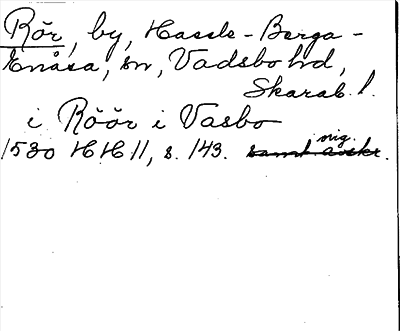 Rör, by, Hassle-Berga-
Enåsa, sn, Vadsbo hd,
Skarab. l.
i Röör i Vasbo
1530 HH 11, s. 143. samt avskr. orig.